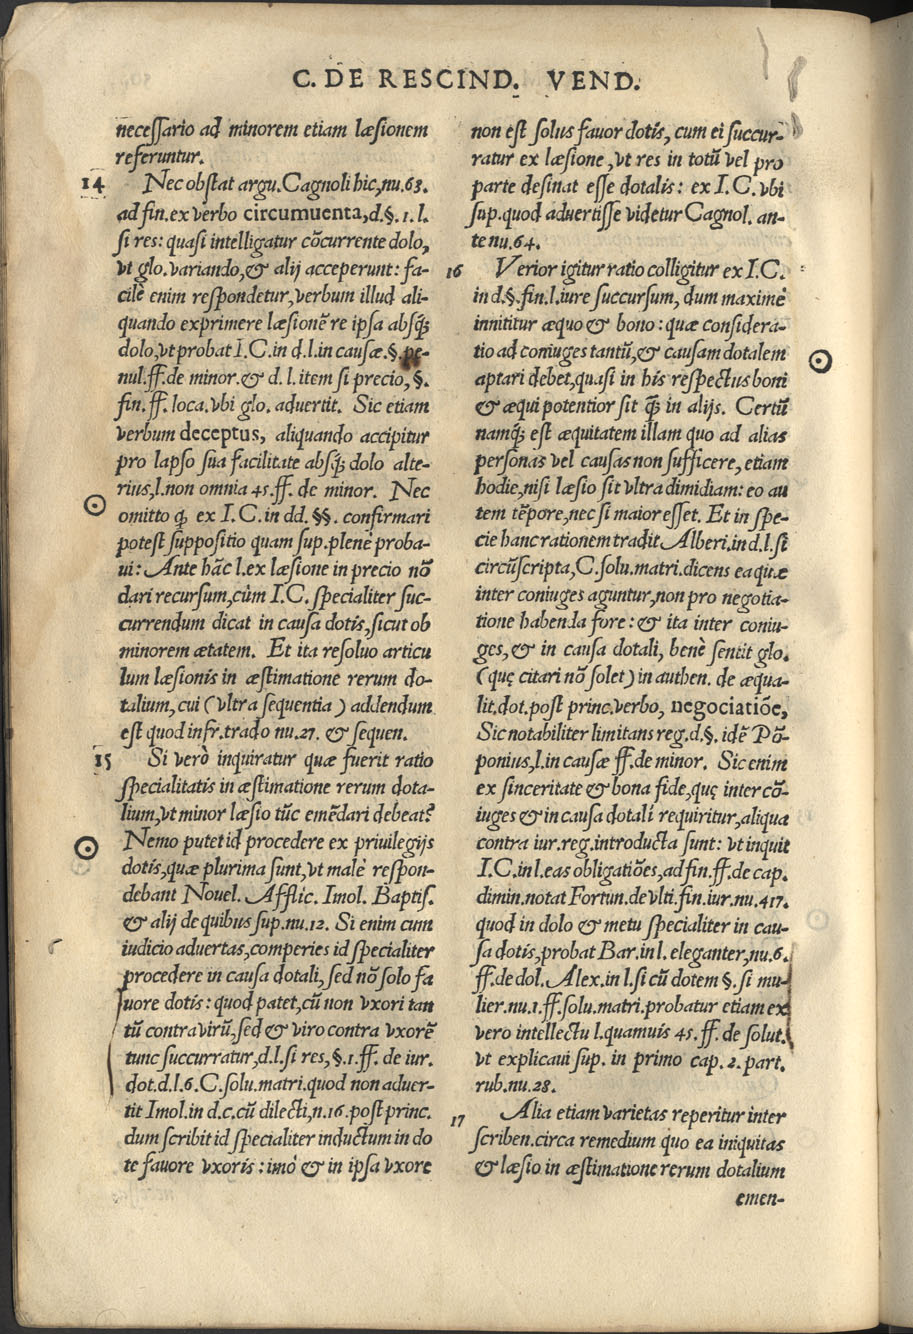 C. DE RESCIND. VEND.
necessario ad minorem etiam læsionem
referuntur.
14 Nec obstat argu. Cagnoli hic, nu. 63.
ad fin. ex verbo circumuenta, d. §. 1. l.
si res: quasi intelligatur cōcurrente dolo,
vt glo. variando, & alij acceperunt: fa-
cilè enim respondetur, verbum illud ali-
quando exprimere læsionē re ipsa absq́;
dolo, vt probat I. C. in d. l. in causæ. §. pe-
nul. ff. de minor. & d. l. item si precio, §.
fin. ff. loca. vbi glo. aduertit. Sic etiam
verbum deceptus, aliquando accipitur
pro lapso sua facilitate absq́; dolo alte-
rius, l. non omnia 45. ff. de minor. Nec
omitto ꝙ ex I. C. in dd. §§. confirmari
potest suppositio quam sup. plenè proba-
ui: Ante hāc l. ex læsione in precio nō
dari recursum, cùm I. C. specialiter suc-
currendum dicat in causa dotis, sicut ob
minorem ætatem. Et ita resoluo articu
lum læsionis in æstimatione rerum do-
talium, cui (vltra sequentia) addendum
est quod infr. trado nu. 27. & sequen.
15 Si verò inquiratur quæ fuerit ratio
specialitatis in æstimatione rerum dota-
lium, vt minor læsio tūc emēdari debeat?
Nemo putet id procedere ex priuilegijs
dotis, quæ plurima sunt, vt malè respon-
debant Nouel. Afflic. Imol. Baptis.
& alij de quibus sup. nu. 12. Si enim cum
iudicio aduertas, comperies id specialiter
procedere in causa dotali, sed nō solo fa
uore dotis: quod patet, cū non vxori tan
tū contra virū, sed & viro contra vxorē
tunc succurratur, d. l. si res, §. 1. ff. de iur.
dot. d. l. 6. C. solu. matri. quod non aduer-
tit Imol. in d. c. cū dilecti, n. 16. post princ.
dum scribit id specialiter inductum in do
te fauore vxoris: imò & in ipsa vxore
non est solus fauor dotis, cum ei succur-
ratur ex læsione, vt res in totū vel pro
parte desinat esse dotalis: ex I. C. vbi
sup. quod aduertisse videtur Cagnol. an-
te nu. 64.
16 Verior igitur ratio colligitur ex I. C.
in d. §. fin. l. iure succursum, dum maximè
innititur æquo & bono: quæ considera-
tio ad coniuges tantū, & causam dotalem
aptari debet, quasi in his respectus boni
& æqui potentior sit q̄; in alijs. Certū
namq́; est æquitatem illam quo ad alias
personas vel causas non sufficere, etiam
hodie, nisi læsio sit vltra dimidiam: eo au
tem tēpore, nec si maior esset. Et in spe-
cie hanc rationem tradit Alberi. in d. l. si
circūscripta, C. solu. matri. dicens ea quæ
inter coniuges aguntur, non pro negotia-
tione habenda fore: & ita inter coniu-
ges, & in causa dotali, benè sentit glo.
(quę citari nō solet) in authen. de æqua-
lit. dot. post princ. verbo, negociatiōe,
Sic notabiliter limitans reg. d. §. idē Pō-
ponius, l. in causæ ff. de minor. Sic enim
ex sinceritate & bona fide, quę inter cō-
iuges & in causa dotali requiritur, aliqua
contra iur. reg. introducta sunt: vt inquit
I. C. in l. eas obligatiōes, ad fin. ff. de cap.
dimin. notat Fortun. de vlti. fin. iur. nu. 417.
quod in dolo & metu specialiter in cau-
sa dotis, probat Bar. in l. eleganter, nu. 6.
ff. de dol. Alex. in l. si cū dotem §. si mu-
lier. nu. 1. ff. solu. matri. probatur etiam ex
vero intellectu l. quamuis 45. ff. de solut.
vt explicaui sup. in primo cap. 2. part.
rub. nu. 28.
17 Alia etiam varietas reperitur inter
scriben. circa remedium quo ea iniquitas
& læsio in æstimatione rerum dotalium
emen-